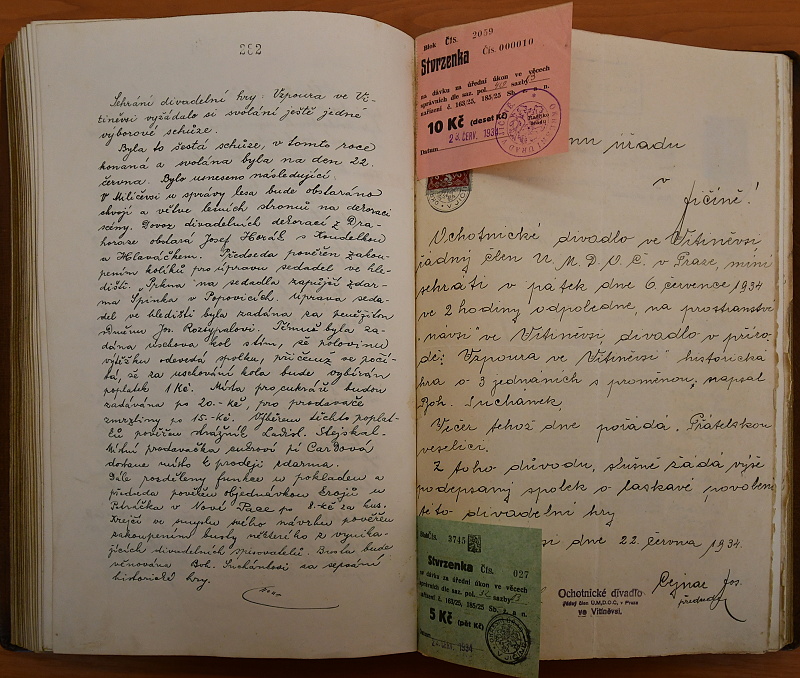 252
Sehrání divadelní hry: Vzpoura ve Vi-
tiněvsi vyžádalo si svolání ještě jedné
výborové schůze.
Byla to šestá schůze, v tomto roce
konaná a svolána byla na den 22.
června. Bylo usneseno následující.
V Miličevsi u správy lesa bude obstaráno
chvojí a větve lesních stromů na dekoraci
scény. Dovoz divadelních dekorací z Dra-
horaze obstará Josef Horák s Koudelkou
a Hlaváčkem. Předseda pověřen zakou-
pením kolíků pro úpravu sedadel ve hle-
dišti. Prkna na sedadla zapůjčí zdar-
ma Špinka v Popovicích. Úprava seda-
del ve hledišti byla zadána za peněžitou
odměnu Jos. Rozsypalovi. Témuž byla za-
dána úschova kol s tím, že polovinu
výtěžku odevzdá spolku, přičemž se počí-
tá, že za uschování kola bude vybírán
poplatek 1 Kč. Místa pro cukráře budou
zadávána po 20.-kč, pro prodavače
zmrzliny po 15.-Kč. Výběrem těchto poplat-
ků pověřen strážník Ladisl. Stejskal.
Místní prodavačka cukroví pí Cardová
dostane místo k prodeji zdarma.
Dále rozděleny funkce u pokladen a
předseda pověřen objednávkou krojů u
Petráčka v Nové Pace po 8.-kč za kus.
Krejčí ve smyslu svého návrhu pověřen
zakoupením busty některého z vynika-
jících divadelních spisovatelů. Busta bude
věnována Boh. Suchánkovi za sepsání
historické hry.
Blok Čís. 2059
Stvrzenka Čís. 000010
na dávku za úřední úkon ve věcech
správních dle saz. pol. sazby
nařízení č. 163/25, 185/25 Sb. z. a n.
10 Kč (deset Kč)
Datum 23. ČERV. 1934
úřadu
v
Jičíně!
Ochotnické divadlo ve Vitiněvsi,
řádný člen Ú.M.D.O.Č. v Praze, míní
sehráti v pátek dne 6. července 1934
ve 2 hodiny odpoledne, na prostranství
"návsi" ve Vitiněvsi divadlo v příro-
dě: "Vzpoura ve Vitiněvsi" historická
hra o 3 jednáních s proměnou, napsal
Boh. Suchánek.
Večer téhož dne pořádá Přátelskou
veselici.
Z toho důvodu, slušně žádá výše
podepsaný spolek o laskavé povolení
této divadelní hry
dne 22. června 1934.
Blok Čís. 3745
Stvrzenka Čís. 027
na dávku za úřední úkon ve věcech
správních dle saz. pol. sazby
nařízení č. 163/25, 185/25 Sb. z. a n.
5 Kč (pět Kč)
1934
Ochotnické divadlo
řádný člen Ú.M.D.O.Č. v Praze
ve Vitiněvsi.
Cejnar Jos.
předseda